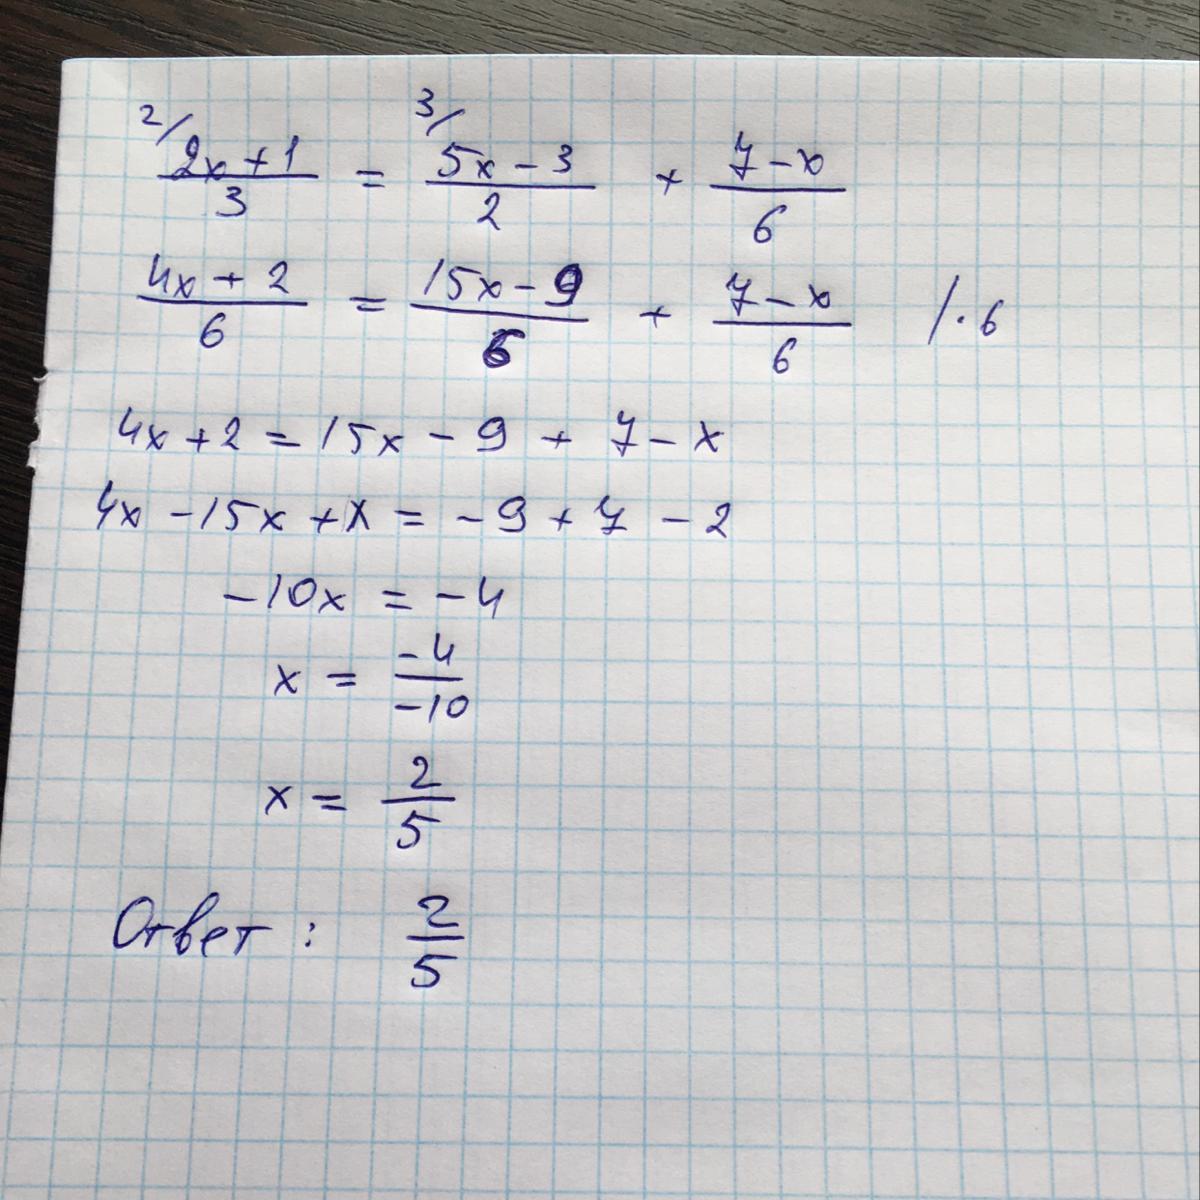 2/ (2x + 1)/3 = 3/ (5x - 3)/2 + (7 - x)/6
(4x + 2)/6 = (15x - 9)/6 + (7 - x)/6 / · 6
4x + 2 = 15x - 9 + 7 - x
4x - 15x + x = - 9 + 7 - 2
- 10x = - 4
x = -4/-10
x = 2/5
Ответ : 2/5